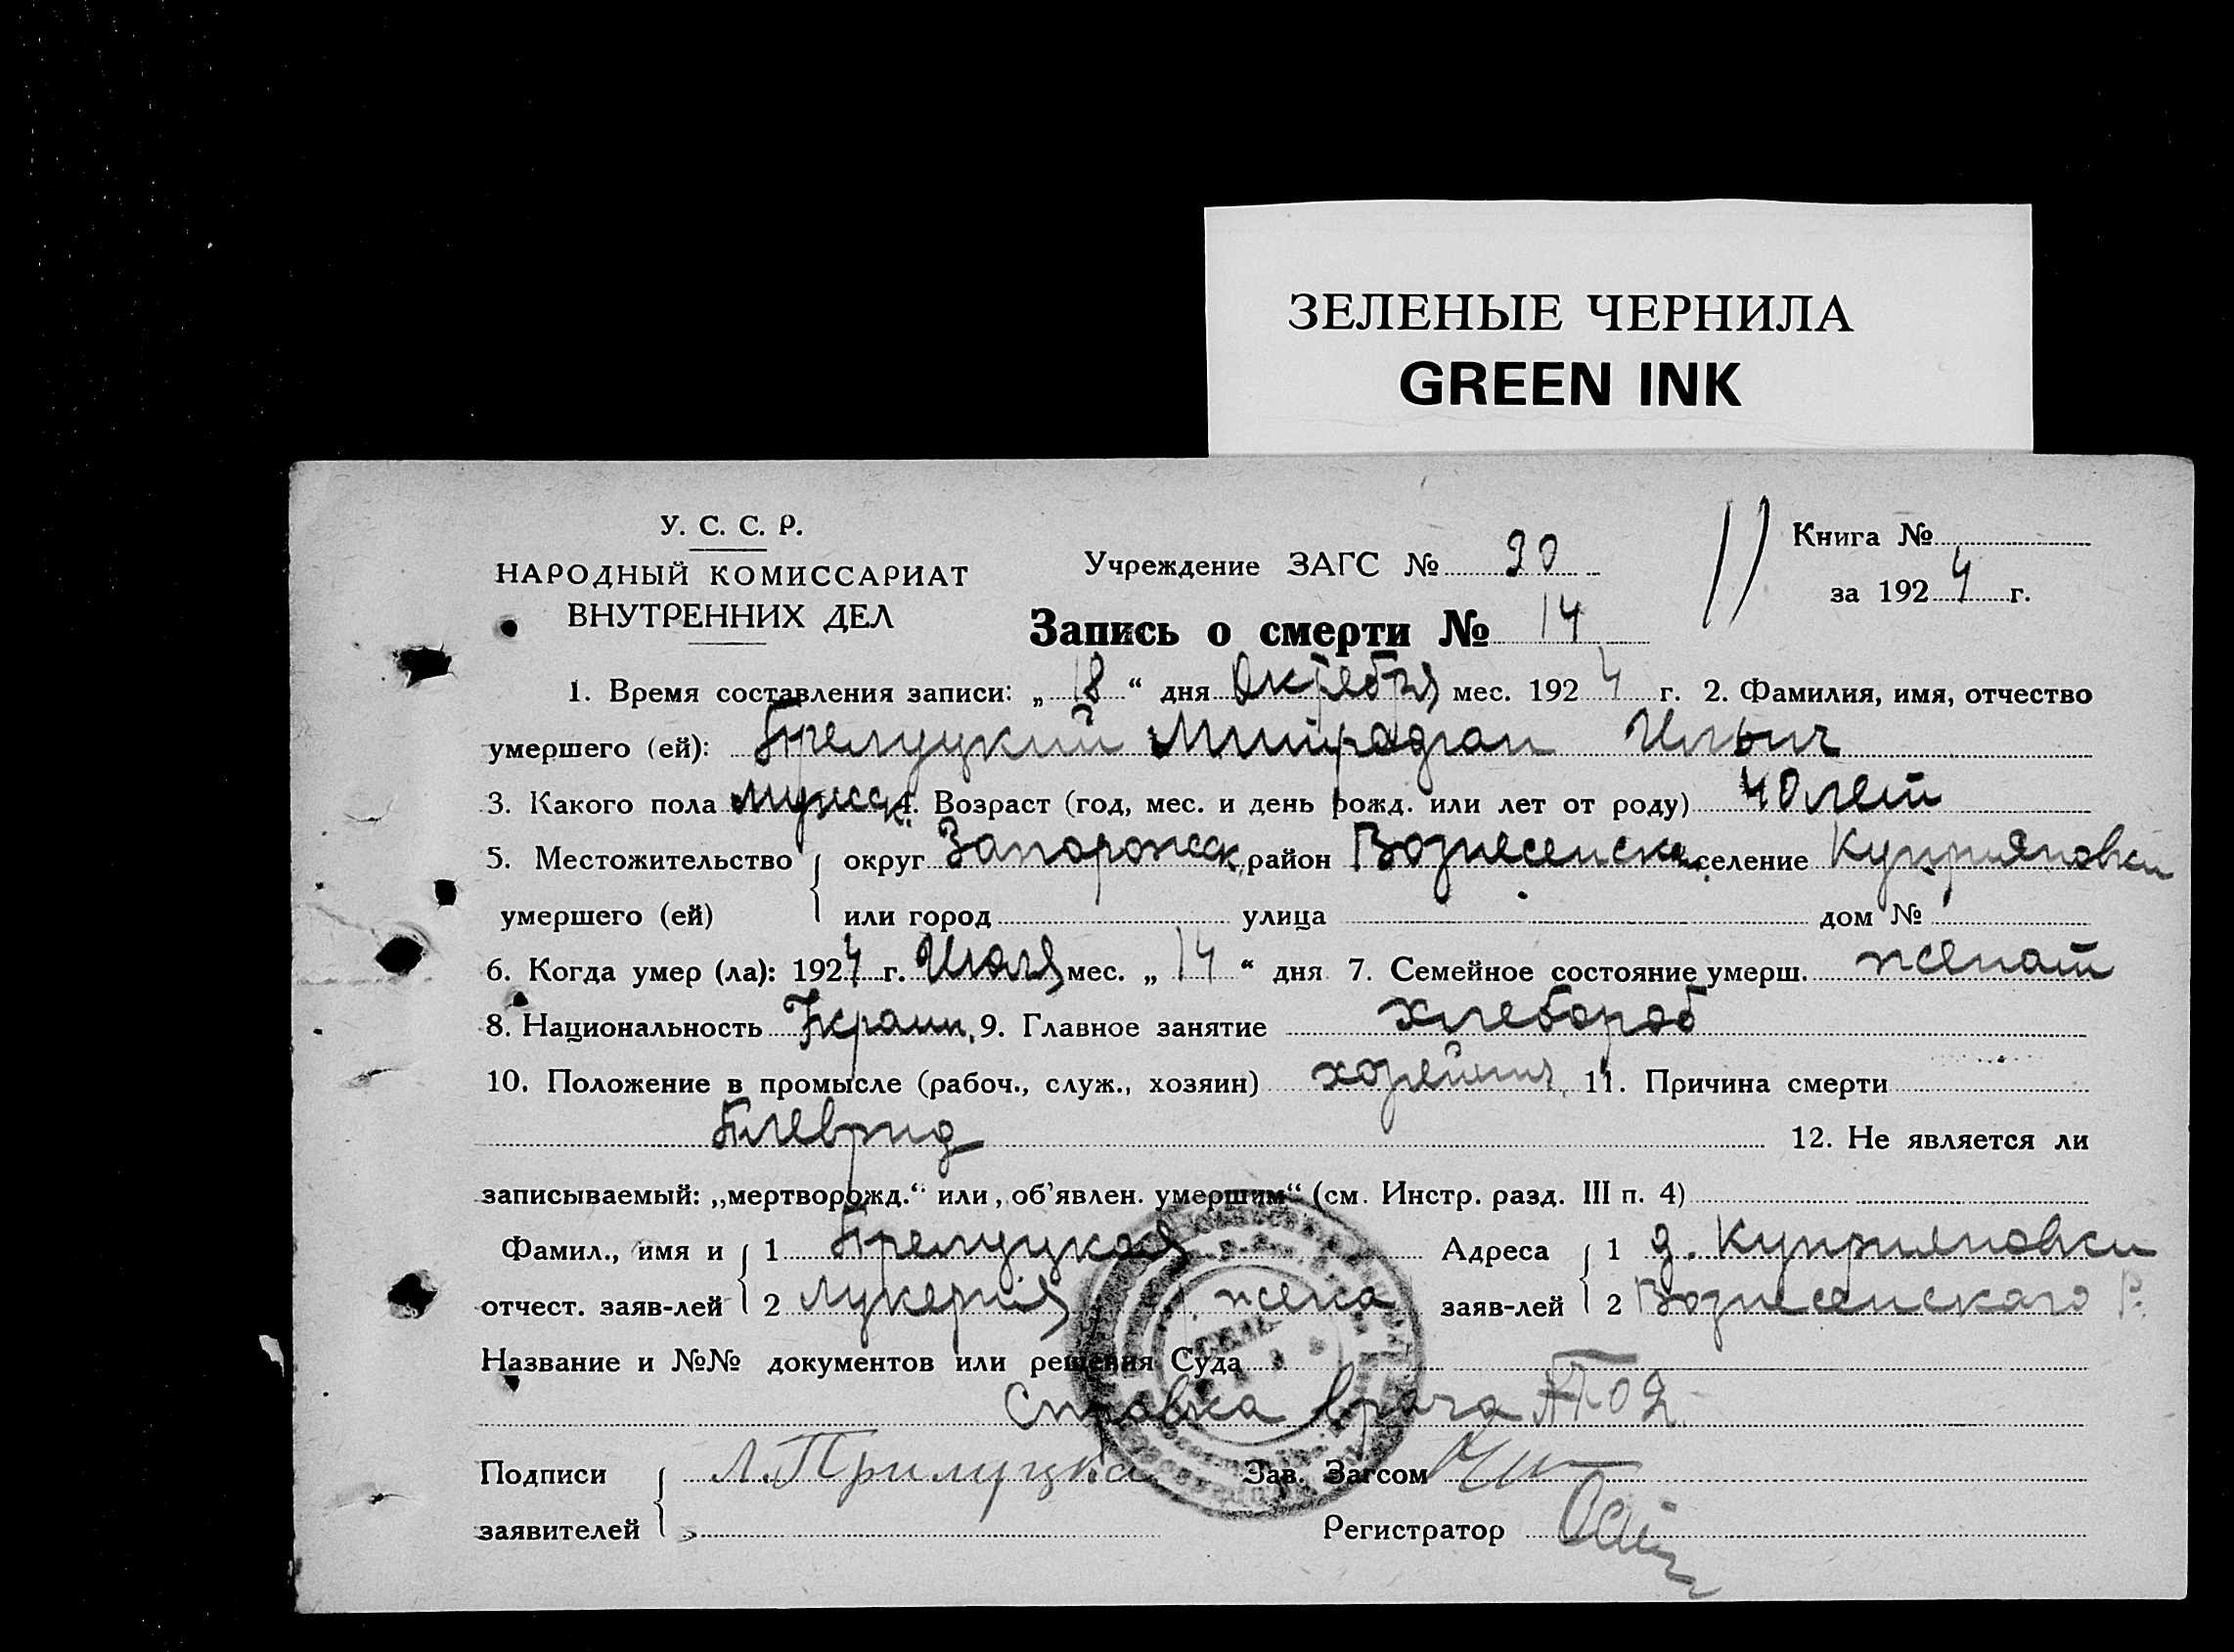 ЗЕЛЕНЫЕ ЧЕРНИЛА
GREEN INK
У. С. С. Р.
НАРОДНЫЙ КОМИССАРИАТ
ВНУТРЕННИХ ДЕЛ
Учреждение ЗАГС № 20
Книга №
за 1924 г.
Запись о смерти № 14
1. Время составления записи: „18“ дня Октебря мес. 1924 г. 2. Фамилия, имя, отчество
умершего (ей): Прелуцкий Митрофан Ильич
3. Какого пола мужск. 4. Возраст (год, мес. и день рожд. или лет от роду) 40 лет
5. Местожительство округ Запорожск. район Вознесенск. селение Куприяновки
умершего (ей) или город улица дом №
6. Когда умер (ла): 1924 г. Июля мес. „14“ дня 7. Семейное состояние умерш. женат
8. Национальность Украин. 9. Главное занятие хлебороб
10. Положение в промысле (рабоч., служ., хозяин) 11. Причина смерти
Плеврид 12. Не является ли
записываемый: „мертворожд.“ или „об'явлен. умершим“ (см. Инстр. разд. III п. 4)
Фамил., имя и 1 Прелуцкая Адреса 1 д. Куприяновки
отчест. заяв-лей 2 Лукерия жена заяв-лей 2 Вознесенскаго Р.
Название и №№ документов или решения Суда
Справка врача
Подписи Л. Прилуцка Зав. Загсом
заявителей Регистратор